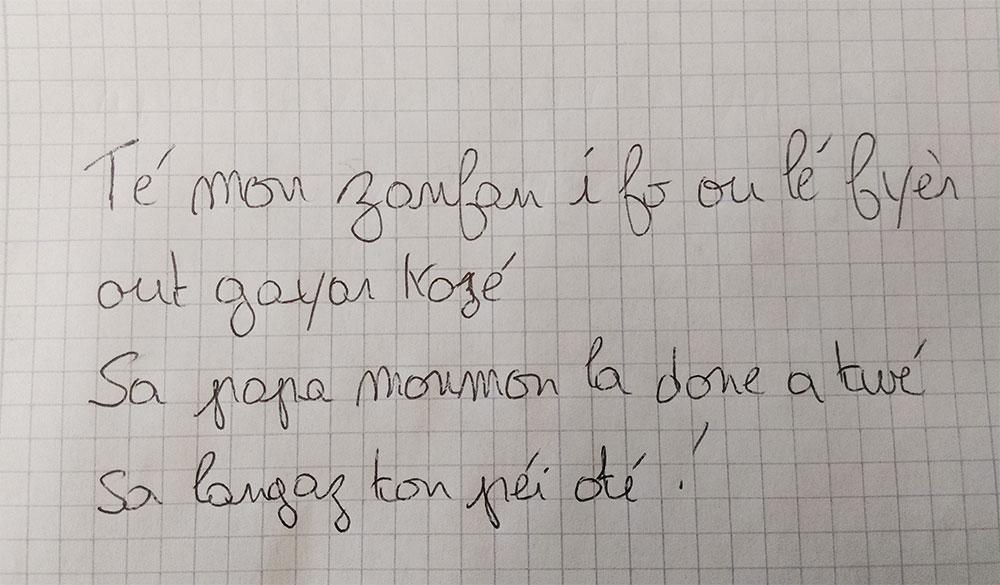 Té mon zanfan i fo ou lé fyèr
out gayar kozé
Sa papa moumon la done a twé
sa langaz ton péi oté !